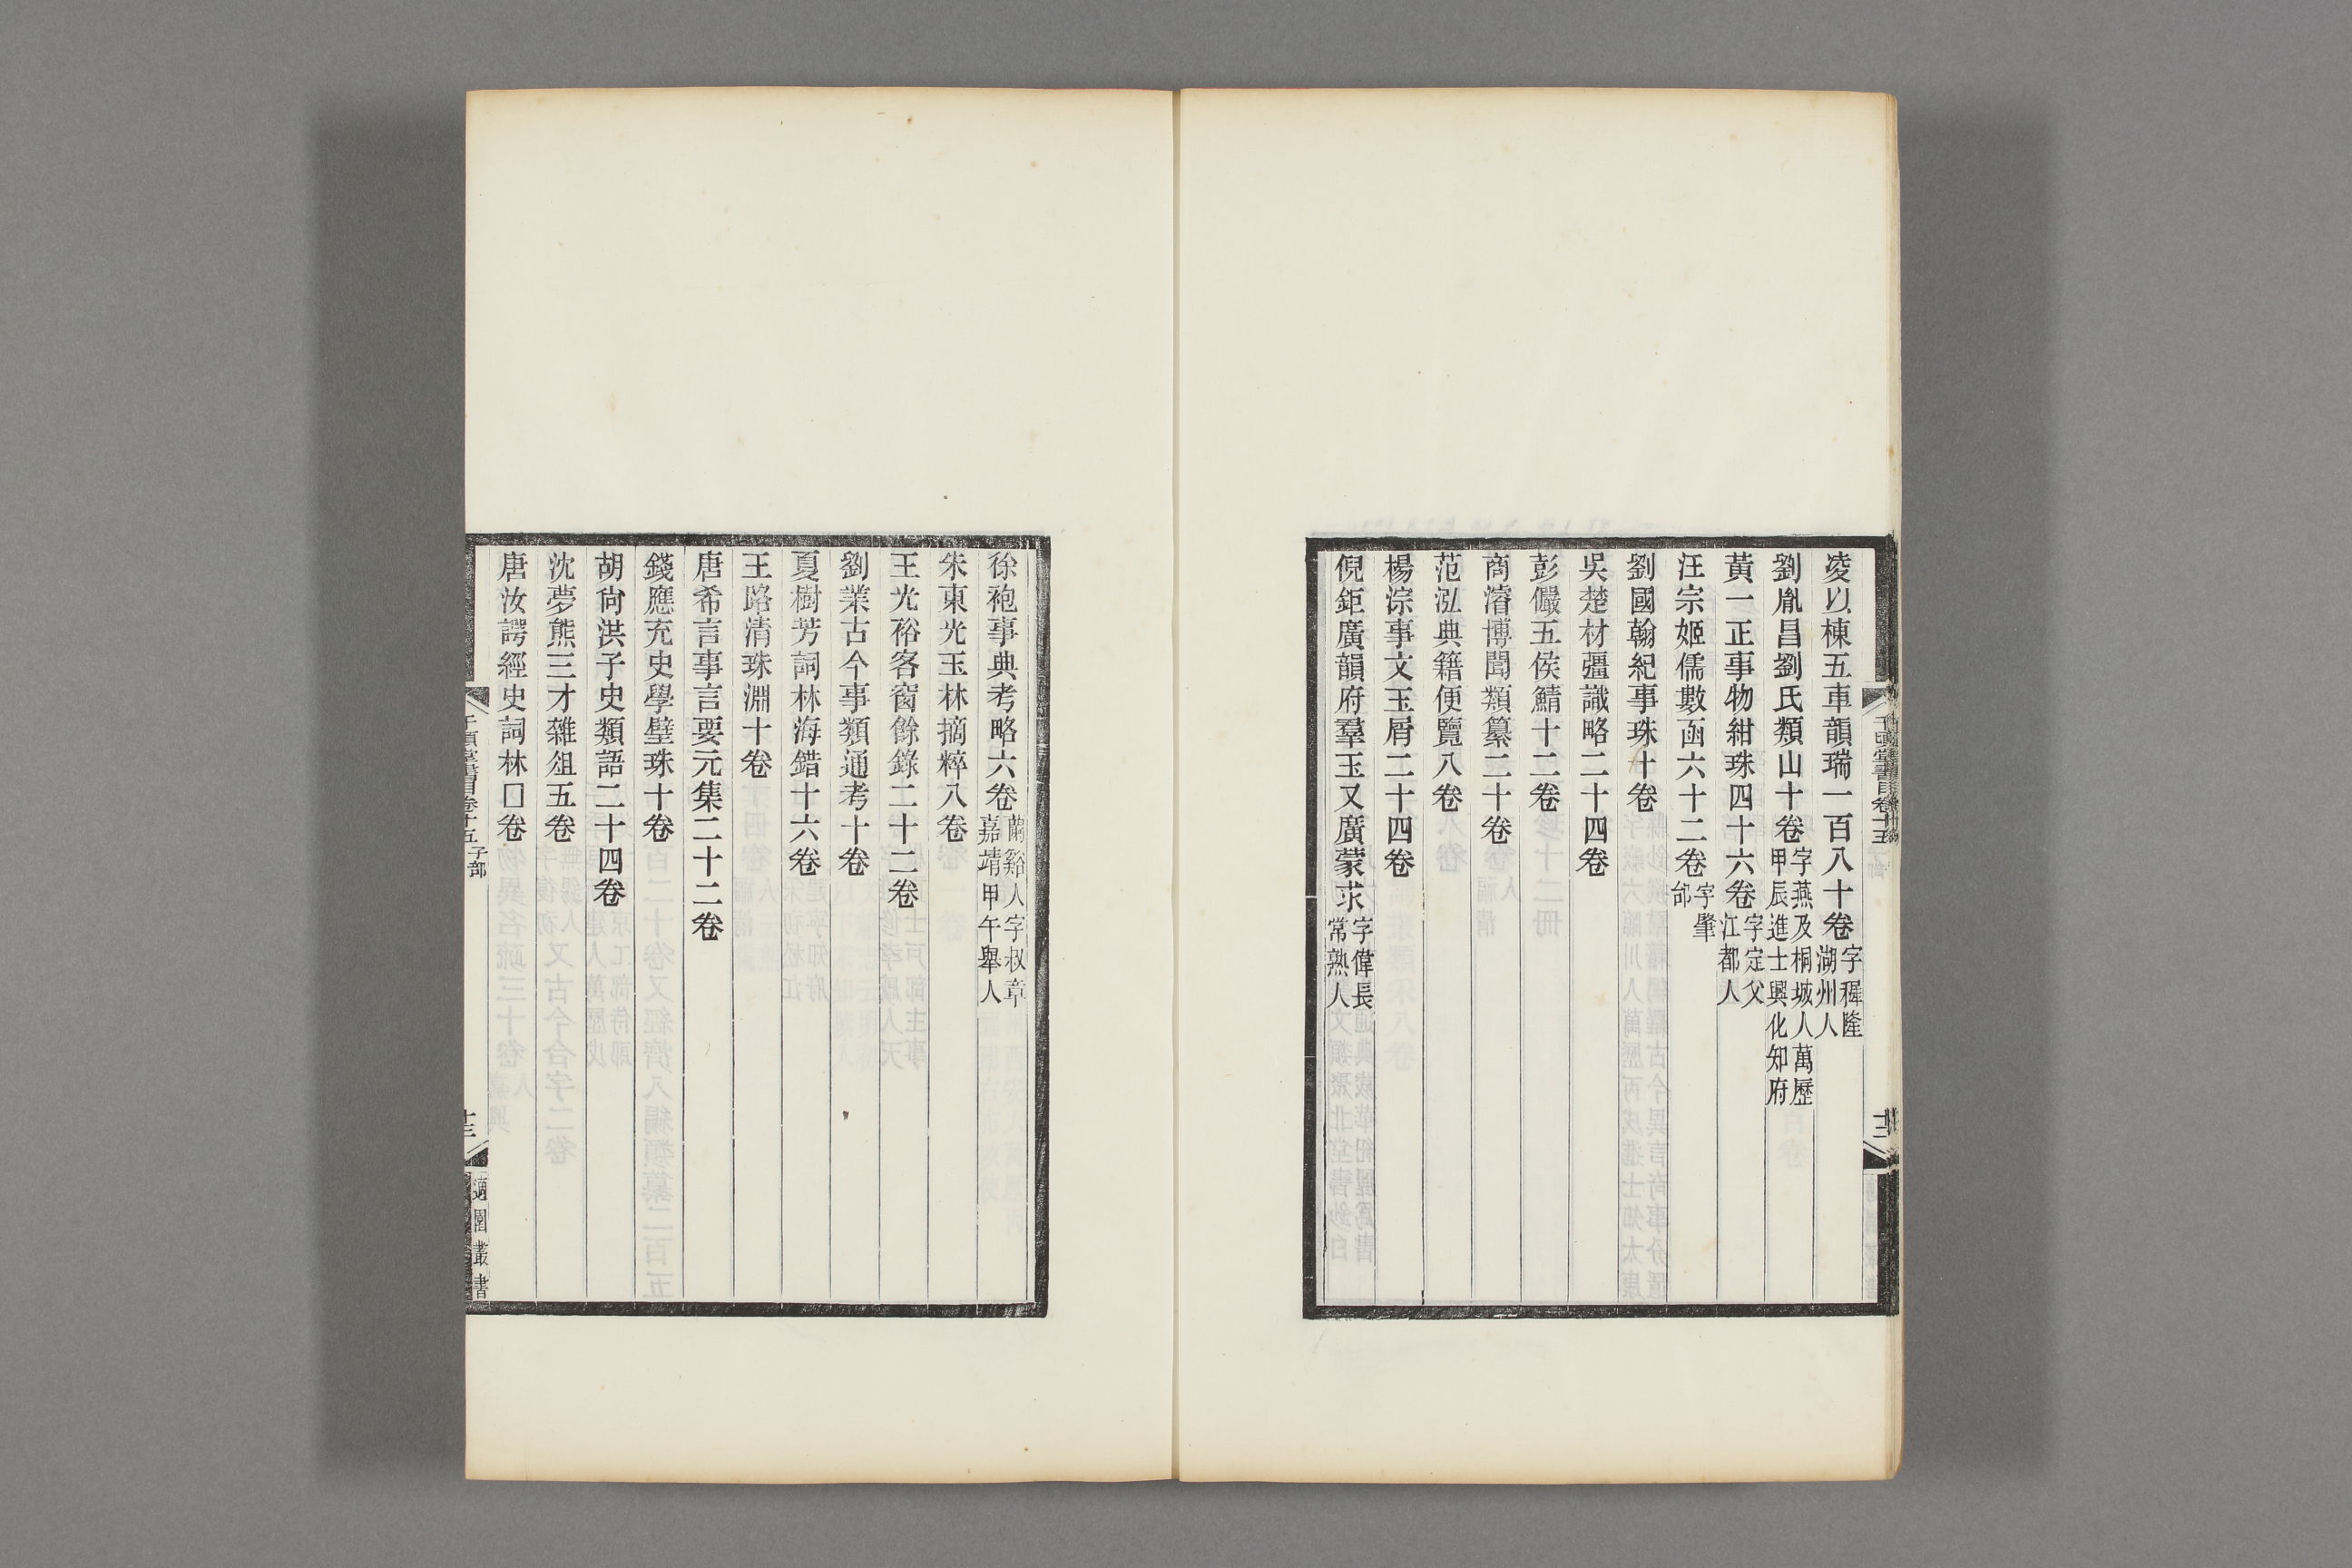 凌以棟五車韻瑞一百八十卷字稺隆湖州人
劉胤昌劉氏類山十卷字燕及桐城人萬歷甲辰進士興化知府
黃一正事物紺珠四十六卷字定父江都人
汪宗姬儒數函六十二卷字肇邰
劉國翰紀事珠十卷
吳楚材彊識略二十四卷
彭儼五侯鯖十二卷
商濬博聞類纂二十卷
范泓典籍便覽八卷
楊淙事文玉屑二十四卷
倪鉅廣韻府羣玉又廣蒙求字偉長常熟人
千頃堂書目卷十五
十二
徐袍事典考略六卷蘭谿人字叔章嘉靖甲午舉人
朱東光玉林摘粹八卷
王光裕客窗餘錄二十二卷
劉業古今事類通考十卷
夏樹芳詞林海錯十六卷
王路清珠淵十卷
唐希言事言要元集二十二卷
錢應充史學璧珠十卷
胡尙洪子史類語二十四卷
沈夢熊三才雜俎五卷
唐汝諤經史詞林囗卷
千頃堂書目卷十五 子部
十三
適園叢書